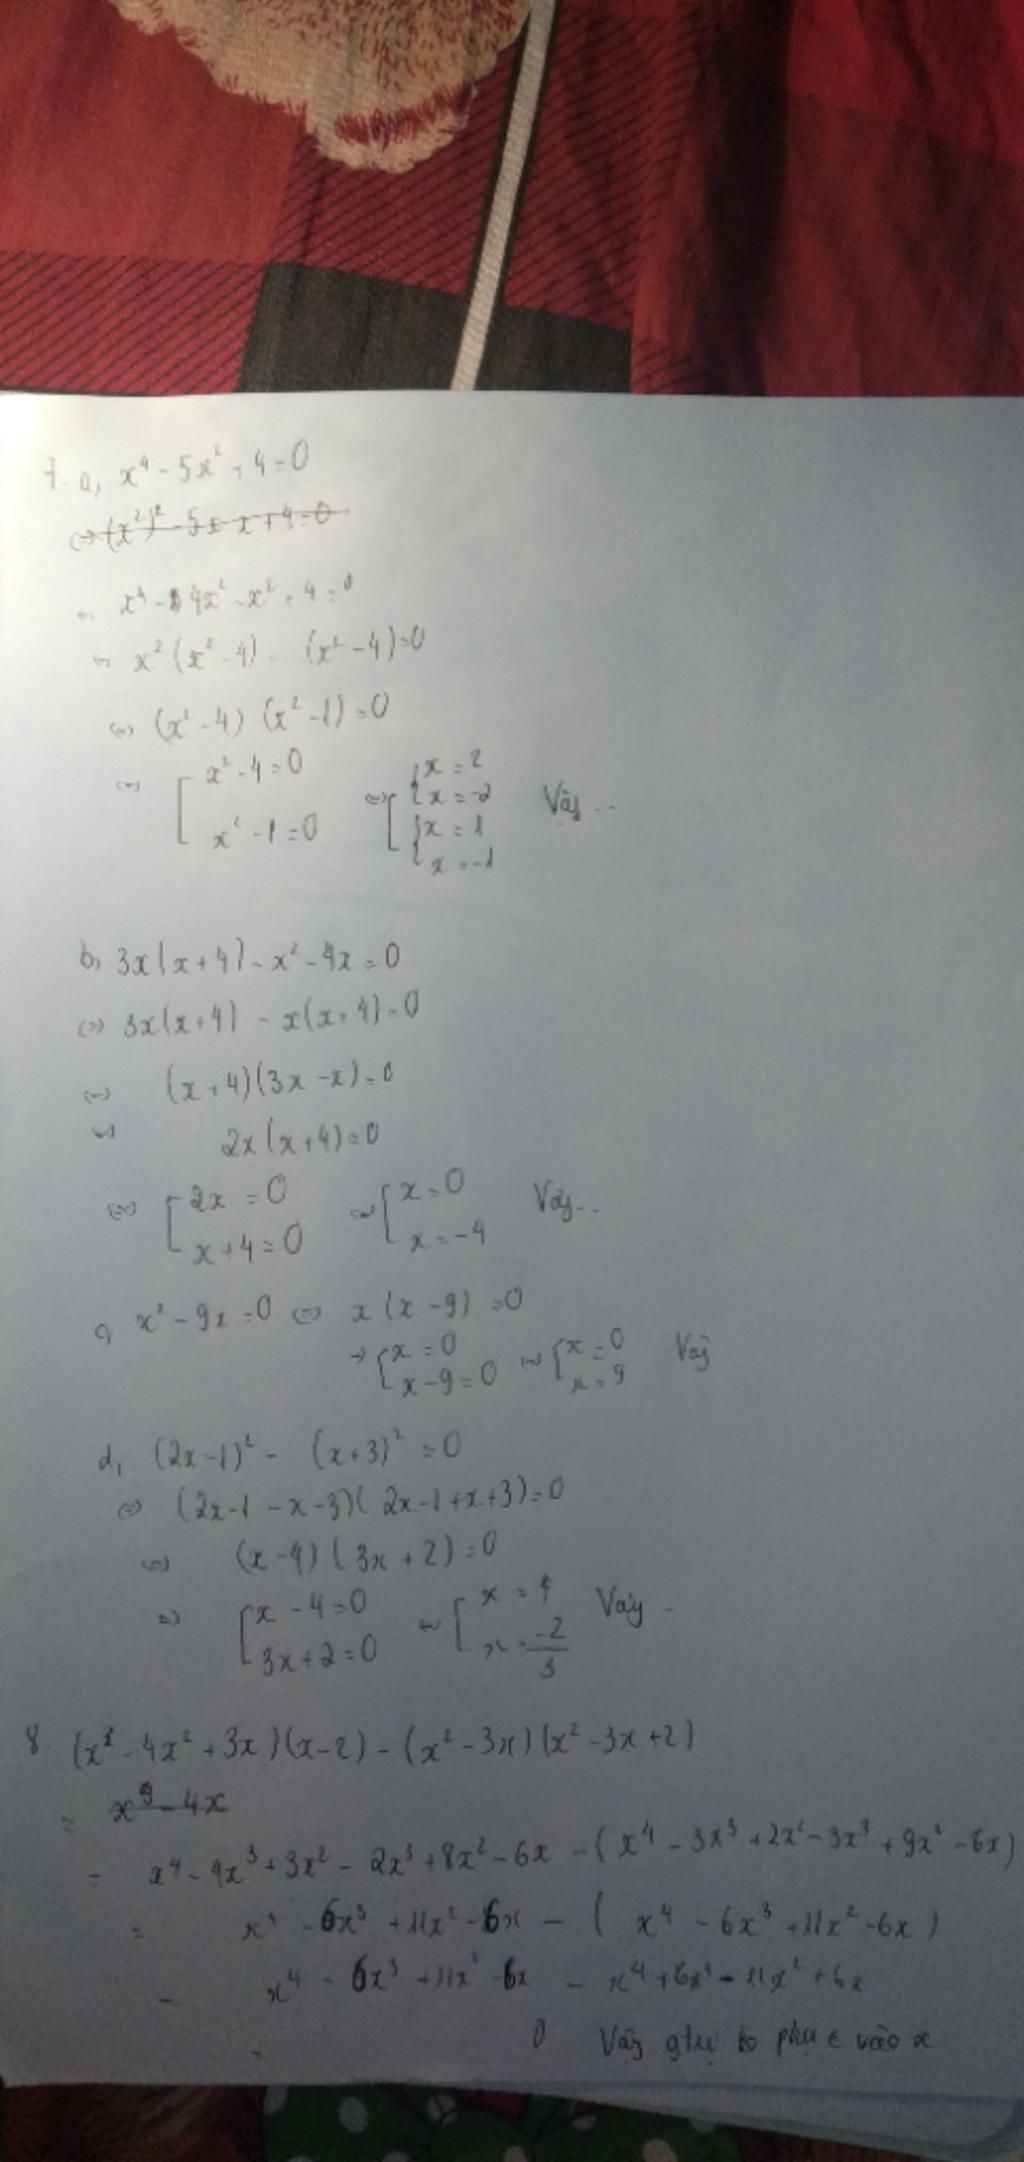 7. a, x⁴ - 5x² + 4 = 0
(=) (x²)² - 5x - x + 4 = 0
(=) x⁴ - 4x² - x² + 4 = 0
(=) x² (x² - 4) - (x² - 4) = 0
(=) (x² - 4) (x² - 1) = 0
(=) [ x² - 4 = 0 (=) [ { x = 2
x = -2 Vậy ..
x² - 1 = 0 { x = 1
x = -1
b, 3x(x + 4) - x² - 4x = 0
(=) 3x(x + 4) - x(x + 4) = 0
(=) (x + 4)(3x - x) = 0
(=) 2x(x + 4) = 0
(=) [ 2x = 0 (=) [ x = 0 Vậy..
x + 4 = 0 x = -4
c, x² - 9x = 0 (=) x (x - 9) = 0
→ [ x = 0 (=) [ x = 0 Vậy
x - 9 = 0 x = 9
d, (2x - 1)² - (x + 3)² = 0
(=) (2x - 1 - x - 3)(2x - 1 + x + 3) = 0
(=) (x - 4) (3x + 2) = 0
(=) [ x - 4 = 0 (=) [ x = 4 Vậy -
3x + 2 = 0 x = -2/3
8. (x³ - 4x² + 3x)(x - 2) - (x² - 3x)(x² - 3x + 2)
= x⁹ - 4x
= x⁴ - 4x³ + 3x² - 2x³ + 8x² - 6x - (x⁴ - 3x³ + 2x² - 3x³ + 9x² - 6x)
= x⁴ - 6x³ + 11x² - 6x - (x⁴ - 6x³ + 11x² - 6x)
= x⁴ - 6x³ + 11x² - 6x - x⁴ + 6x³ - 11x² + 6x
= 0 Vậy gtrị ko phụ ∈ vào x